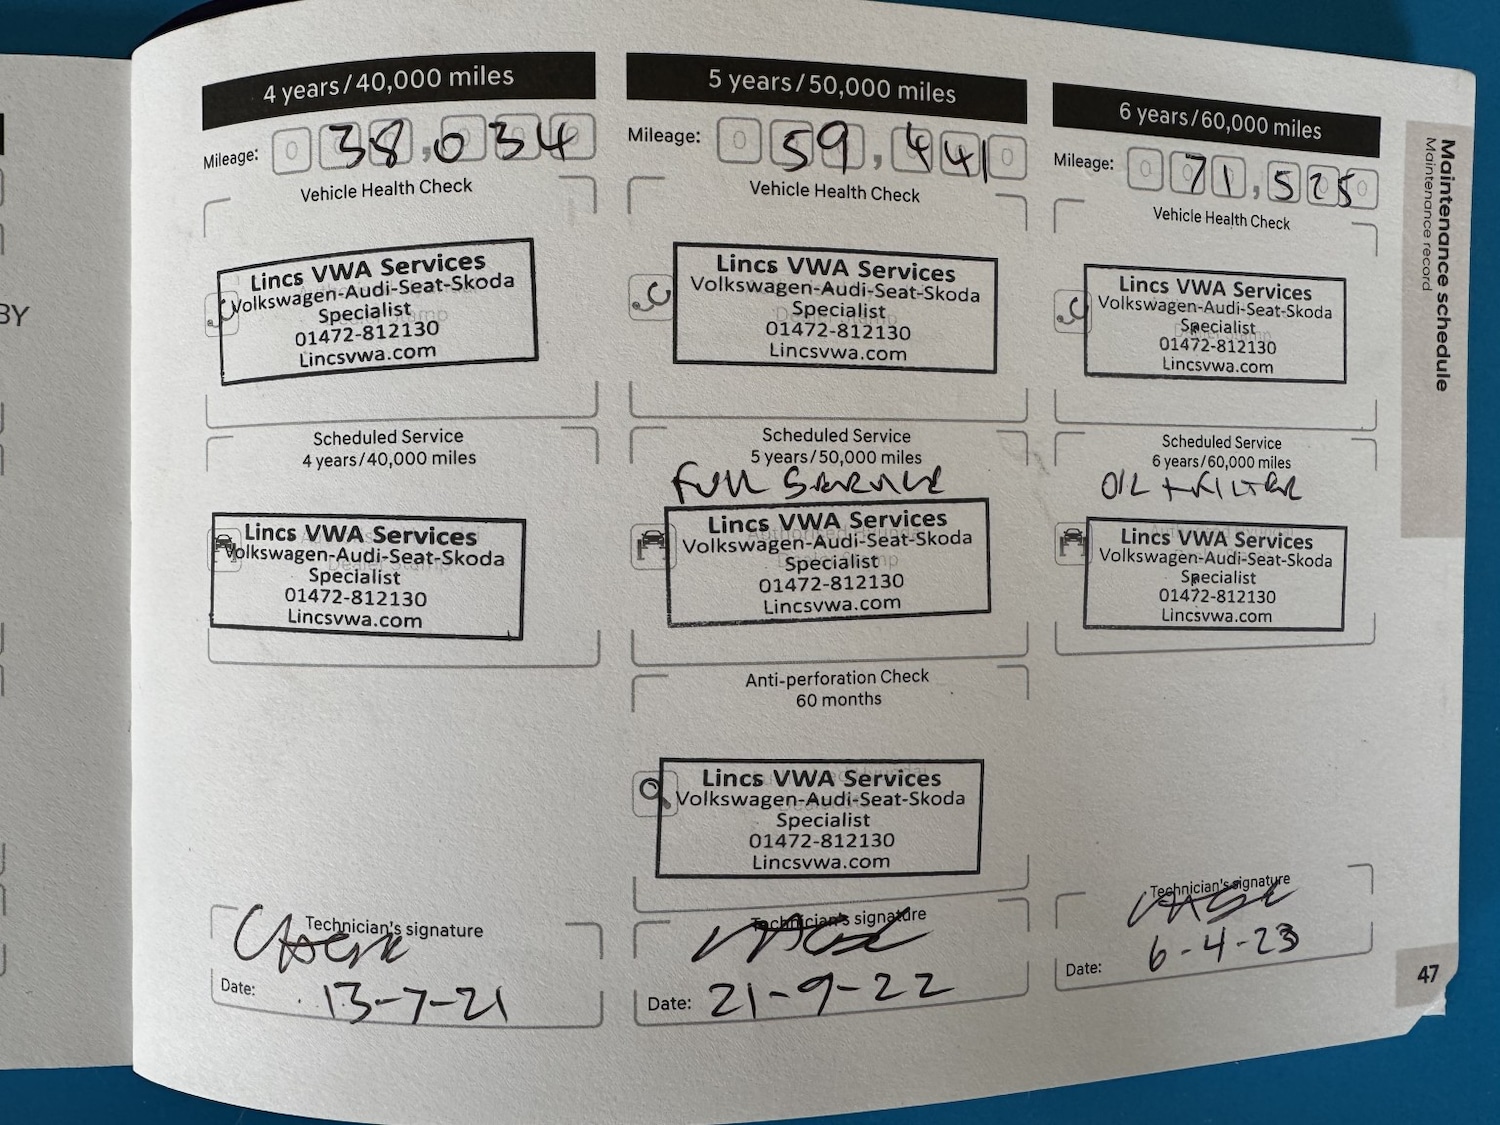 BY
4 years/40,000 miles
Mileage: 38,034
Vehicle Health Check
Lincs VWA Services
Volkswagen-Audi-Seat-Skoda
Specialist
01472-812130
Lincsvwa.com
Scheduled Service
4 years/40,000 miles
Lincs VWA Services
Volkswagen-Audi-Seat-Skoda
Specialist
01472-812130
Lincsvwa.com
Technician's signature
Date: 13-7-21
5 years/50,000 miles
Mileage: 59,441
Vehicle Health Check
Lincs VWA Services
Volkswagen-Audi-Seat-Skoda
Specialist
01472-812130
Lincsvwa.com
Scheduled Service
5 years/50,000 miles
FULL SERVICE
Lincs VWA Services
Volkswagen-Audi-Seat-Skoda
Specialist
01472-812130
Lincsvwa.com
Anti-perforation Check
60 months
Lincs VWA Services
Volkswagen-Audi-Seat-Skoda
Specialist
01472-812130
Lincsvwa.com
Technician's signature
Date: 21-9-22
6 years/60,000 miles
Mileage: 71,525
Vehicle Health Check
Lincs VWA Services
Volkswagen-Audi-Seat-Skoda
Specialist
01472-812130
Lincsvwa.com
Scheduled Service
6 years/60,000 miles
OIL + FILTER
Lincs VWA Services
Volkswagen-Audi-Seat-Skoda
Specialist
01472-812130
Lincsvwa.com
Technician's signature
Date: 6-4-23
Maintenance schedule
Maintenance record
47